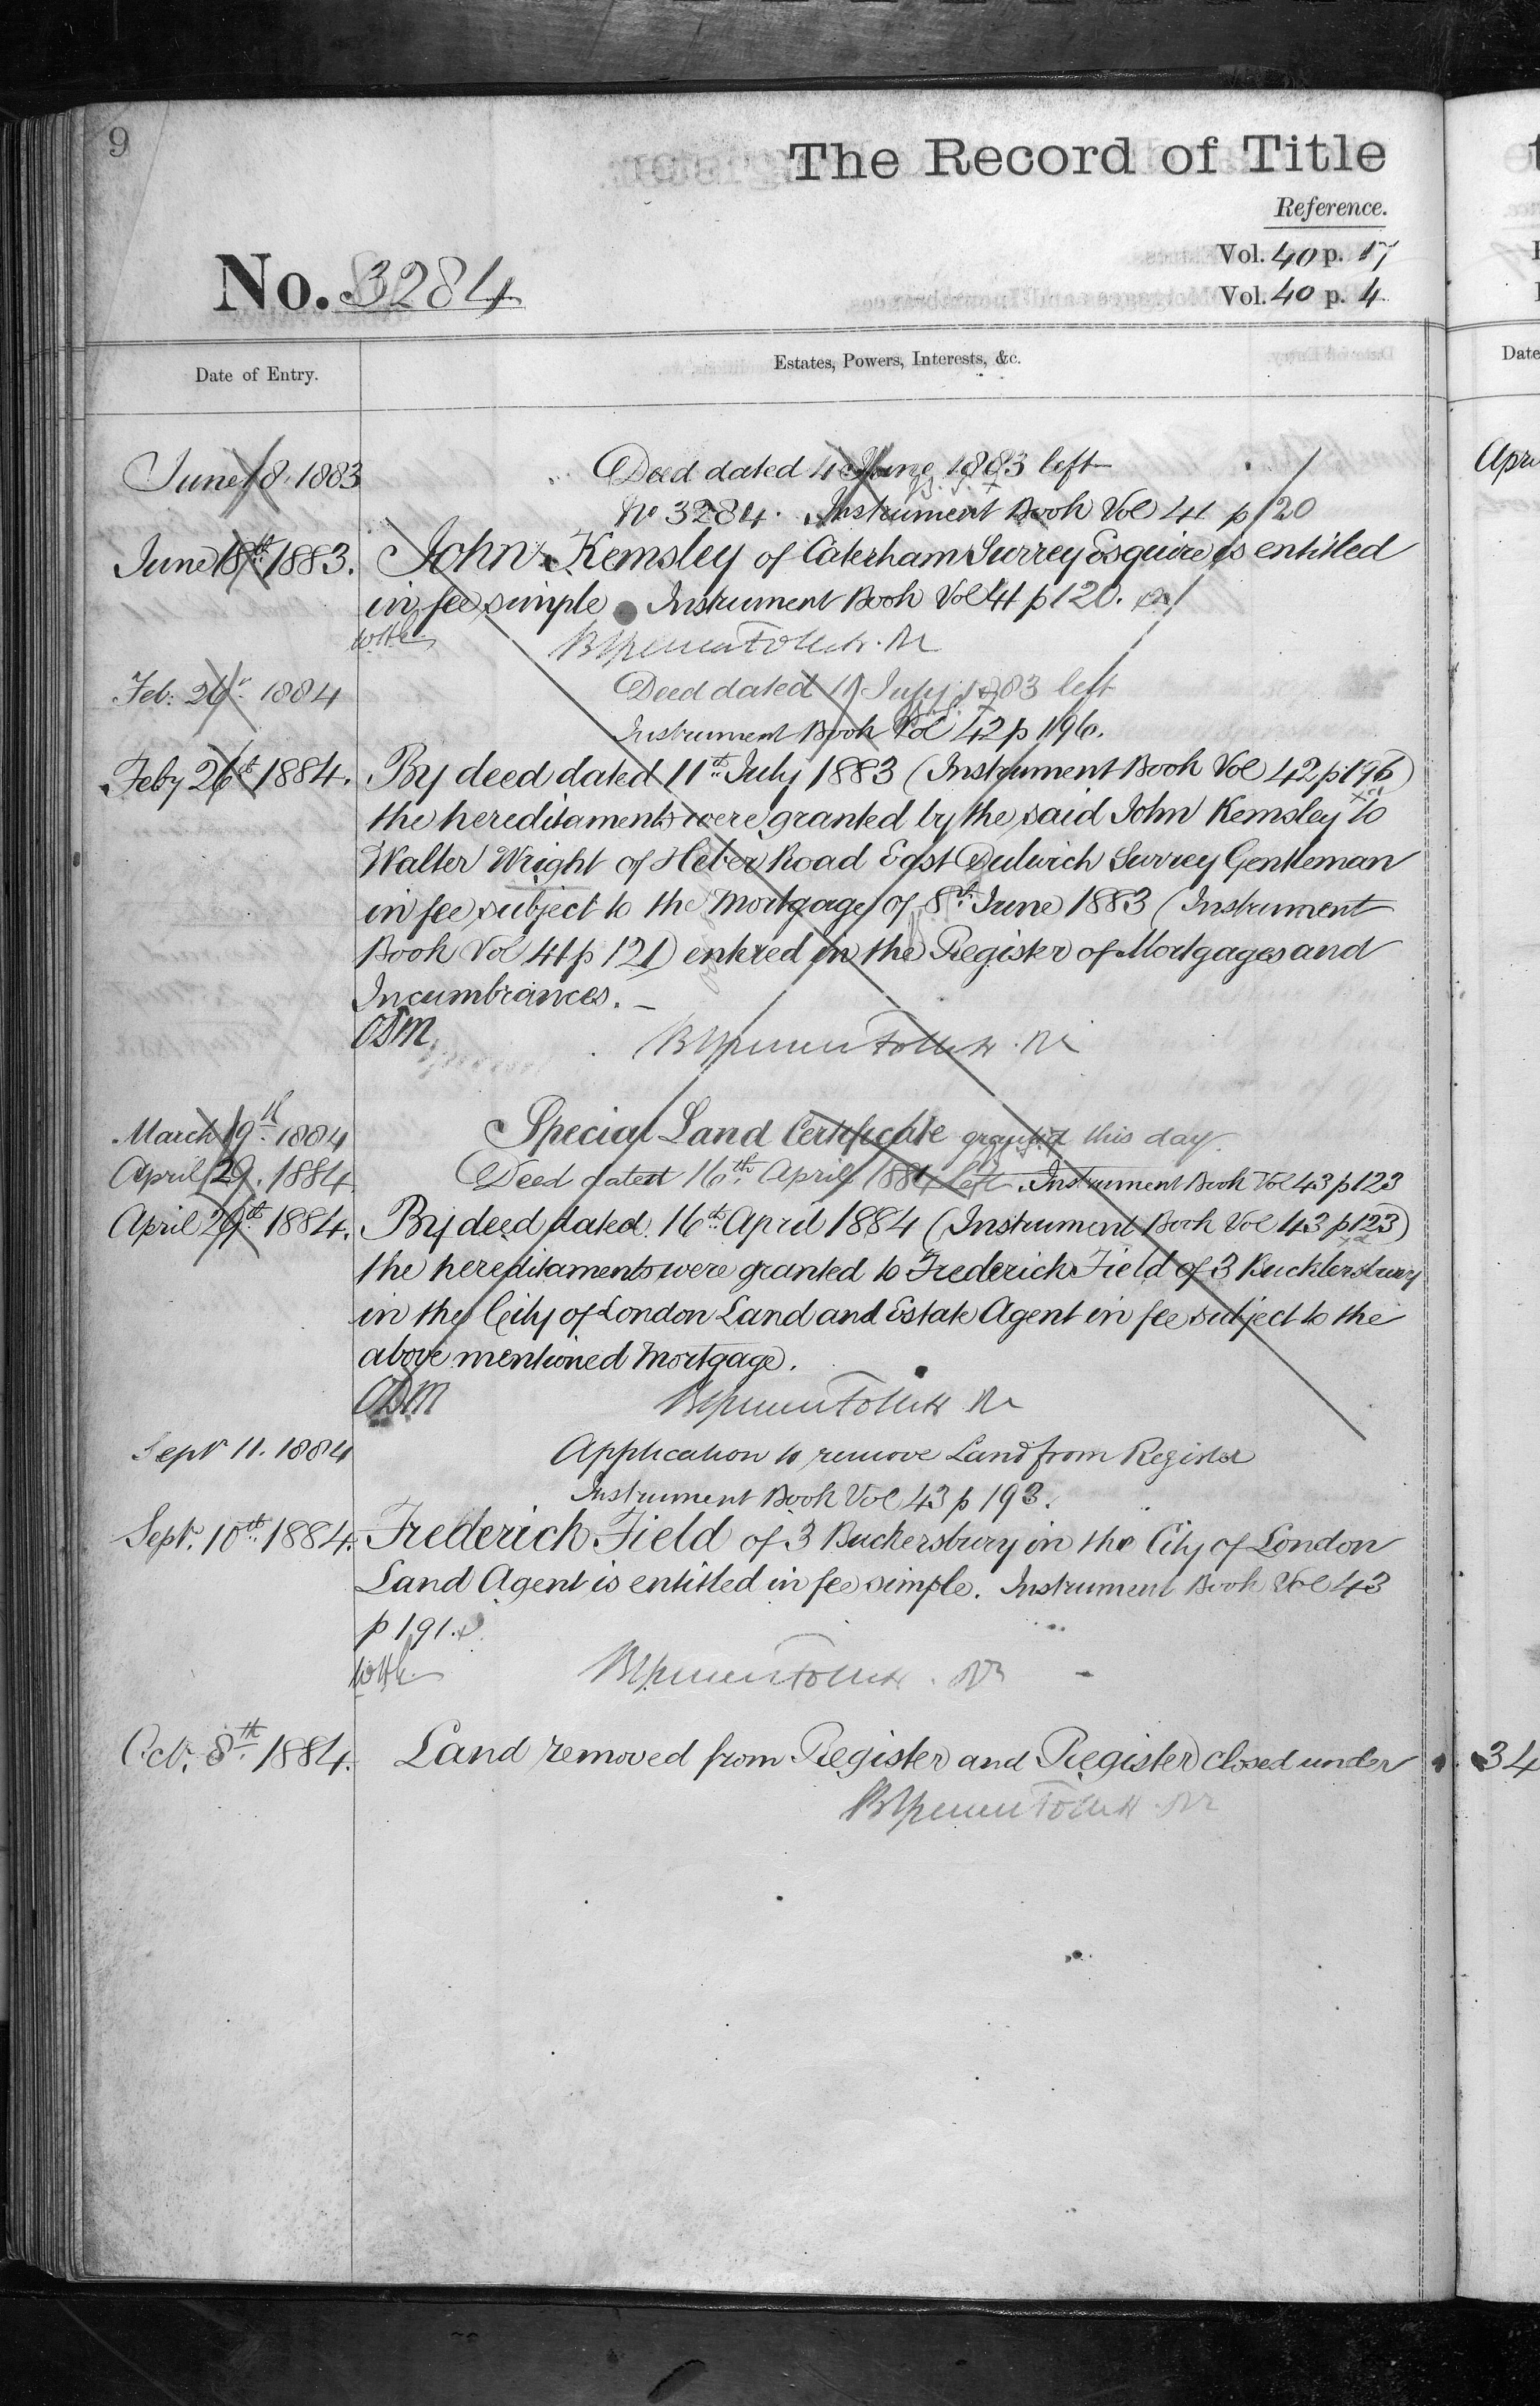 9
The Record of Title
Reference.
Vol. 40 p. 17
Vol. 40 p. 4
No. 3284
Date of Entry.
Estates, Powers, Interests, &c.
Date
June 8. 1883 Deed dated 4 June 1883 left
No 3284. Instrument Book Vol 41 p 120
June 18th 1883. John Kemsley of Caterham Surrey Esquire is entitled
in fee simple Instrument Book Vol 41 p 120.
Feb: 26th 1884 Deed dated 11 July 1883 left
Instrument Book Vol 42 p 196.
Feby 26th 1884. By deed dated 11th July 1883 (Instrument Book Vol 42 p 196)
the hereditaments were granted by the said John Kemsley to
Walter Wright of Heber Road East Dulwich Surrey Gentleman
in fee subject to the Mortgage of 8th June 1883 (Instrument
Book Vol 41 p 121) entered in the Register of Mortgages and
Incumbrances.
ODM
March 19th 1884 Special Land Certificate granted this day.
April 29. 1884. Deed dated 16th April 1884 left. Instrument Book Vol 43 p 123
April 29th 1884. By deed dated 16th April 1884 (Instrument Book Vol 43 p 123)
the hereditaments were granted to Frederick Field of 3 Bucklersbury
in the City of London Land and Estate Agent in fee subject to the
above mentioned Mortgage.
ODM
Sept 11. 1884 Application to remove Land from Register
Instrument Book Vol 43 p 193.
Sept. 10th 1884. Frederick Field of 3 Buckersbury in the City of London
Land Agent is entitled in fee simple. Instrument Book Vol 43
p 191.
Oct. 8th 1884. Land removed from Register and Register closed under
34